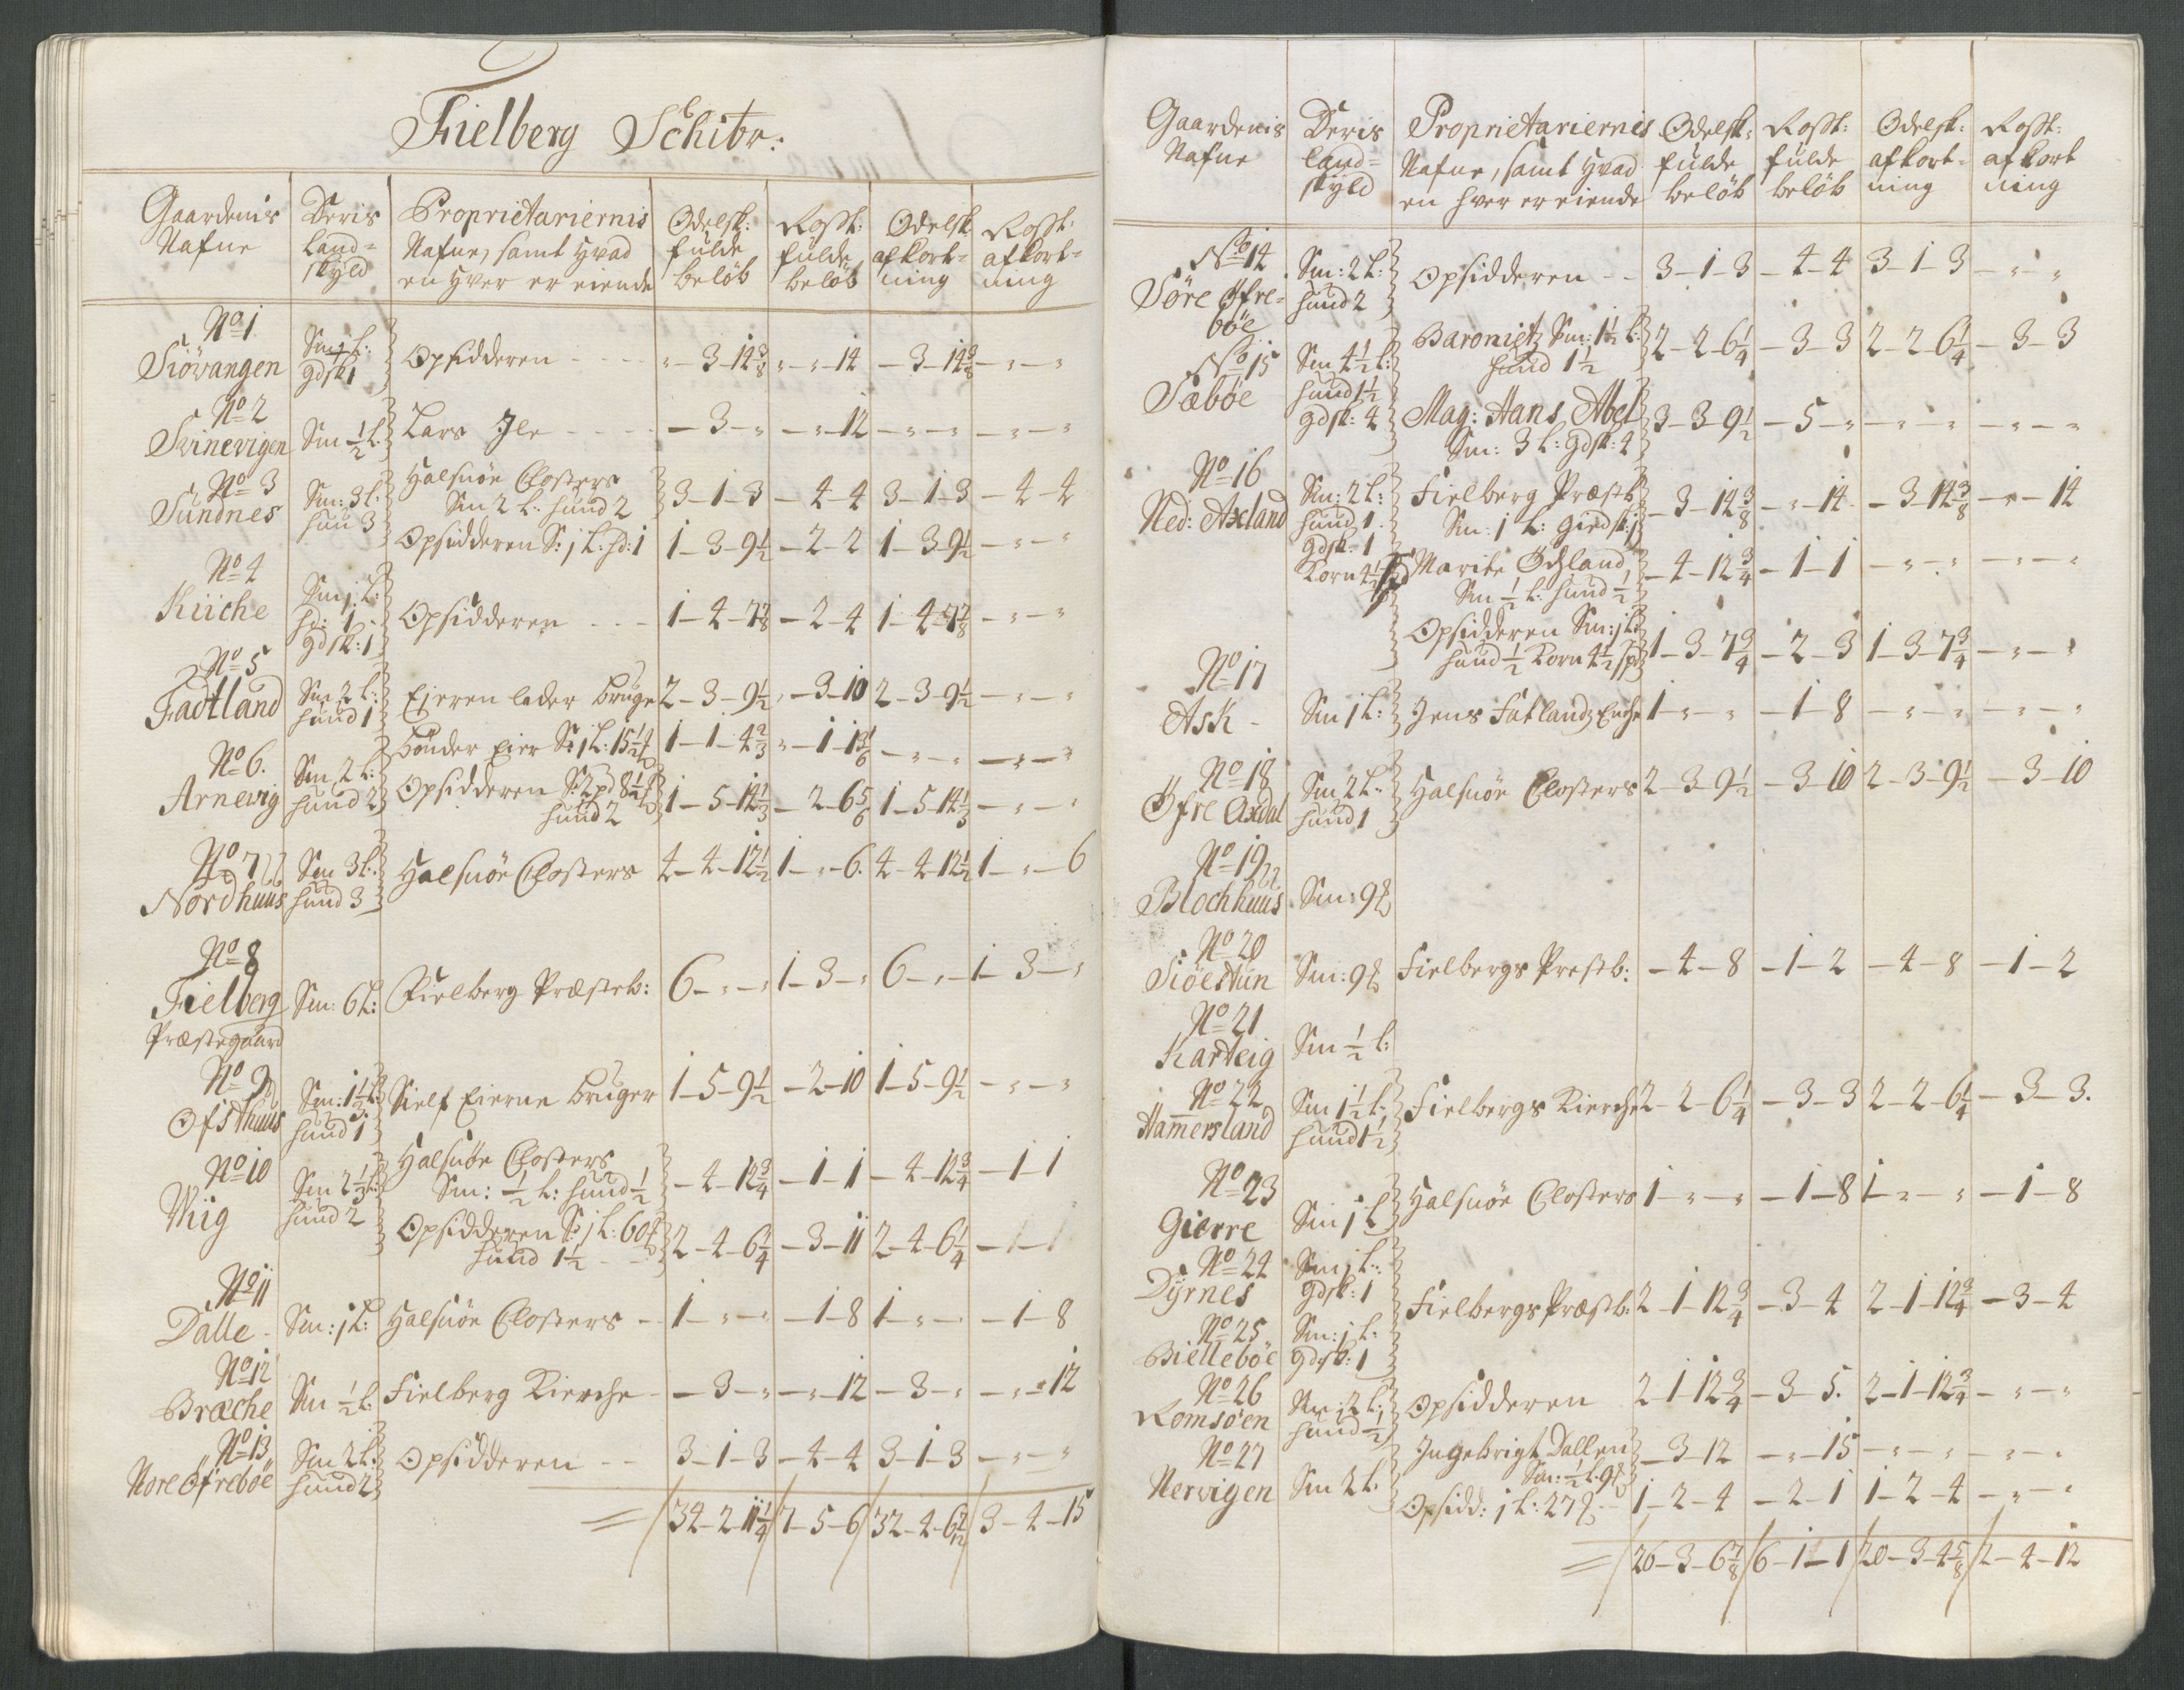 Fielberg Schibr:
Gaardenis Nafne | Deris Land= skyld | Proprietariernis Nafne, samt hvad en hver er eiende | Odelsk: fulde beløb | Rosst: fulde beløb | Odelsk afkort= ning | Rosst: afkort= ning
No 1
Siövangen | Sm 1 L: gdsk 1 | Opsidderen | " - 3 - 14 3/8 | " - " - 14 | - 3 - 14 3/8 | - " - "
No 2
Svinevigen | Sm 1/2 L | Lars Ile | - 3 - " | - " - 12 | - " - " | - " - "
No 3
Sundnes | Sm: 3 L. hun 3 | Halsnöe Closters Sm 2 L: hund 2 | 3 - 1 - 3 | - 4 - 4 | 3 - 1 - 3 | - 4 - 4
Opsidderen S: 1 L: hd: 1 | 1 - 3 - 9 1/2 | - 2 - 2 | 1 - 3 - 9 1/2 | - " - "
No 4
Kiiche | Sm 1 L: hd: 1. gdsk: 1 | Opsidderen | 1 - 4 - 7 7/8 | - 2 - 4 | 1 - 4 - 7 7/8 | - " - "
No 5
Fadtland | Sm 2 L: hund 1 | Eieren lader bruge | 2 - 3 - 9 1/2 | " - 3 - 10 | 2 - 3 - 9 1/2 | - " - "
No 6.
Arnevig | Sm 2 L: hund 2 | bönder Eier S: 1 L: 15 1/2 | 1 - 1 - 4 2/3 | " - 1 - 13 1/6 | - " - " | - " - "
Opsidderen S: 2 pd 8 1/2 hund 2 | 1 - 5 - 14 1/3 | - 2 - 6 5/6 | 1 - 5 - 14 1/3 | - " - "
No 7
Nordhuus | Sm 3 L. hund 3 | Halsnöe Closters | 4 - 4 - 12 1/2 | 1 - " - 6. | 4 - 4 - 12 1/2 | 1 - " - 6
No 8
Fielberg Præstegaard | Sm: 6 L: | Fielberg Præsteb: | 6 - " - " | 1 - 3 - " | 6 - " - " | 1 - 3 - "
No 9
Ofsthuus | Sm: 1 1/3 L: hund 1 | Sielf Eierne bruger | 1 - 5 - 9 1/2 | - 2 - 10 | 1 - 5 - 9 1/2 | - " - "
No 10
Wiig | Sm 2 1/3 L: hund 2 | Halsnöe Closters Sm: 1/2 L: hund 1/2 | - 4 - 12 3/4 | - 1 - 1 | - 4 - 12 3/4 | - 1 - 1
Opsidderen S: 1 L: 60 hund 1 1/2 | 2 - 4 - 6 1/4 | - 3 - 11 | 2 - 4 - 6 1/4 | - 1 - 1
No 11
Dalle | Sm: 1 L: | Halsnöe Closters | 1 - " - " | - 1 - 8 | 1 - " - " | - 1 - 8
No 12
Bræche | Sm 1/2 L. | Fielberg Kierche | - 3 - " | - " - 12 | - 3 - " | - " - 12
No 13
Nore Øfreböe | Sm 2 L: hund 2 | Opsidderen | 3 - 1 - 3 | - 4 - 4 | 3 - 1 - 3 | - " - "
= / 34 - 2 - 11 1/4 / 7 - 5 - 6 / 32 - 4 - 6 7/12 / 3 - 4 - 15
Gaardenis Nafne | Deris Land= skyld | Proprietariernis Nafne, samt hvad en hver er eiende | Odelsk: fulde beløb | Rosst: fulde beløb | Odelsk: afkort= ning | Rosst: afkort ning
No 14
Søre Øfre= böe | Sm: 2 L: hund 2 | Opsidderen | 3 - 1 - 3 | - 4 - 4 | 3 - 1 - 3 | - " - "
No 15
Sæböe | Sm 4 1/2 L: hund 1 1/2 gdsk: 4 | Baronietz Sm: 1 1/2 L: hund 1 1/2 | 2 - 2 - 6 1/4 | - 3 - 3 | 2 - 2 - 6 1/4 | - 3 - 3
Mag: Hans Abel Sm: 3 L: gdsk: 4 | 3 - 3 - 9 1/2 | - 5 - " | - " - " | - " - "
No 16
Ned: Axland | Sm: 2 L: hund 1. gdsk: 1 Korn 4 1/2 | Fielberg Præstb Sm: 1 L: giedsk: 1 | - 3 - 14 3/8 | - " - 14 | - 3 - 14 3/8 | - " - 14
Marite Øchland Sm 1/2 L: hund 1/2 | - 4 - 12 3/4 | - 1 - 1 | - " - " | - " - "
Opsidderen Sm: 1/2 L hund 1/2 Korn 4 1/2 sp | 1 - 3 - 7 3/4 | - 2 - 3 | 1 - 3 - 7 3/4 | - " - "
No 17
Ask - | Sm 1 L: | Jens Fatlandz Enche | 1 - " - " | - 1 - 8 | - " - " | - " - "
No 18
Øfre Axdal | Sm 2 L: hund 1 | Halsnöe Closters | 2 - 3 - 9 1/2 | - 3 - 10 | 2 - 3 - 9 1/2 | - 3 - 10
No 19
Blochhuus | Sm: 9
No 20
Siöestun | Sm: 9 | Fielbergs Prestb: | - 4 - 8 | - 1 - 2 | - 4 - 8 | - 1 - 2
No 21
Karteig | Sm 1/2 L:
No 22
Hamersland | Sm 1 1/2 L. hund 1 1/2 | Fielbergs Kierche | 2 - 2 - 6 1/4 | - 3 - 3 | 2 - 2 - 6 1/4 | - 3 - 3.
No 23
Gierre | Sm 1 L | Halsnöe Closters | 1 - " - " | - 1 - 8 | 1 - " - " | - 1 - 8
No 24
Dyrnes | Sm 1 L: gdsk: 1 | Fielbergs Præstb: | 2 - 1 - 12 3/4 | - 3 - 4 | 2 - 1 - 12 3/4 | - 3 - 4
No 25
Bielleböe | Sm: 1 L. gdsk: 1
No 26
Romsöen | Sm: 2 L: hund 1/2 | Opsidderen | 2 - 1 - 12 3/4 | - 3 - 5. | 2 - 1 - 12 3/4 | - " - "
No 27
Nervigen | Sm 2 L. | Ingebrigt Dallen Sm: 1/2 L. 9 | - 3 - 12 | - " - 15 | - " - " | - " - "
Opsidd: 1 L: 27 | 1 - 2 - 4 | - 2 - 1 | 1 - 2 - 4 | - " - "
= / 26 - 3 - 6 7/8 / 6 - 1 - 1 / 20 - 3 - 4 5/8 / 2 - 4 - 12